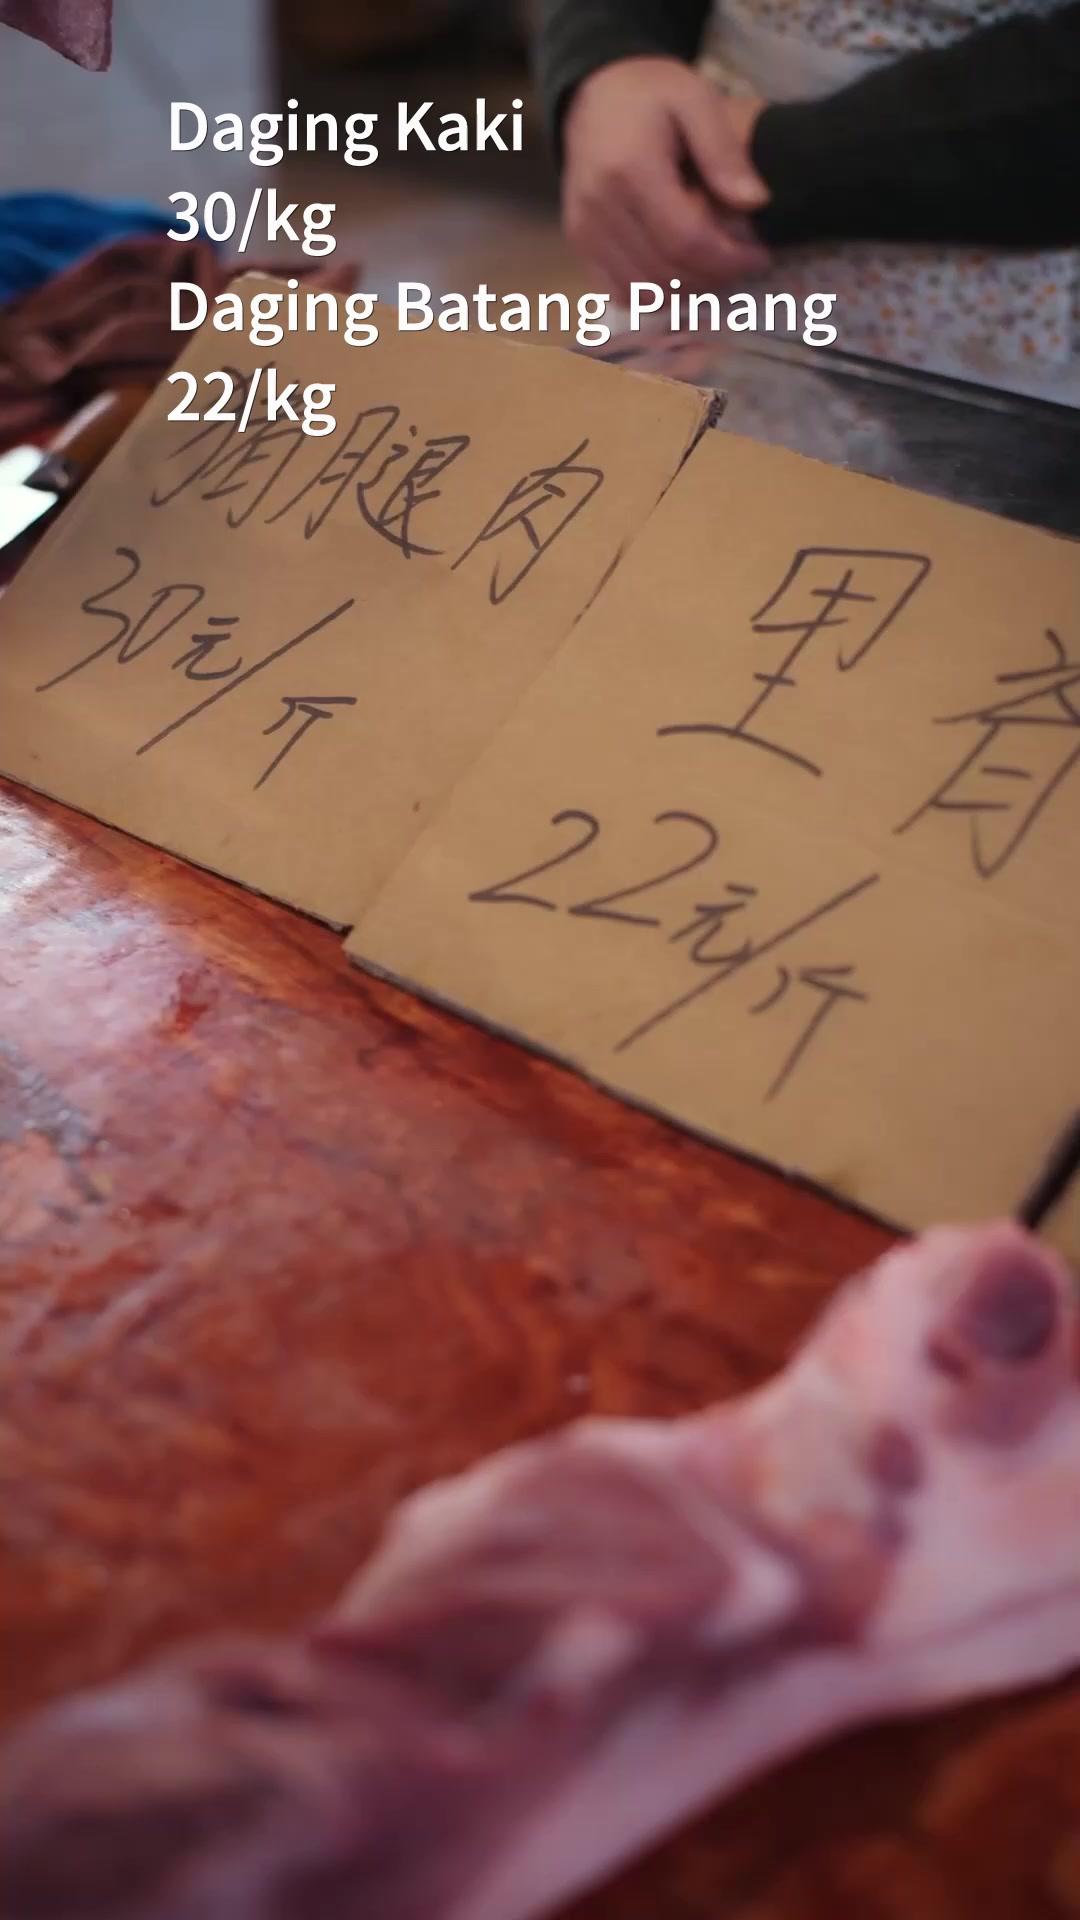 Daging Kaki
30/kg
Daging Batang Pinang
22/kg
猪腿肉
30元/斤
里脊
22元/斤